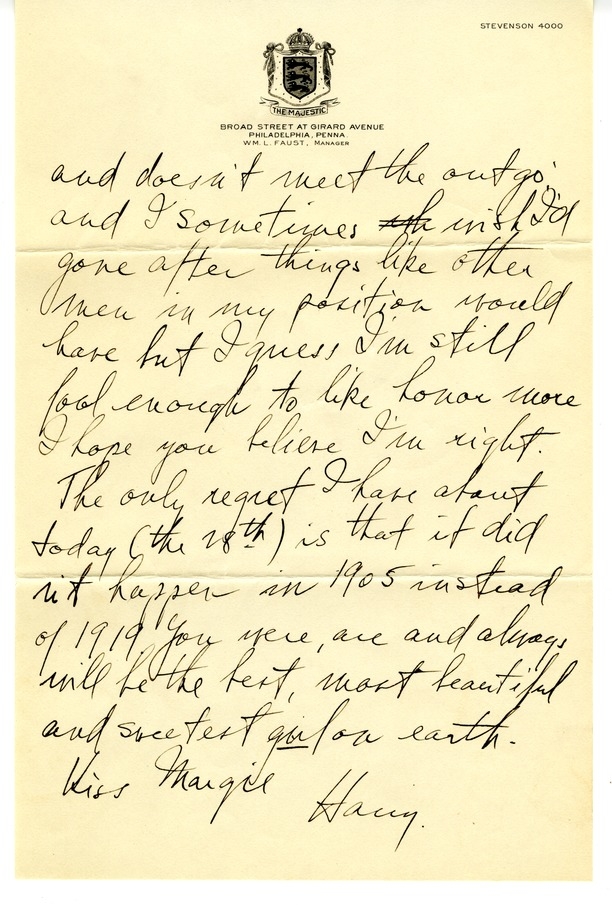 STEVENSON 4000
THE MAJESTIC
BROAD STREET AT GIRARD AVENUE
PHILADELPHIA, PENNA.
WM. L. FAUST, MANAGER
and doesn't meet the outgo,
and I sometimes wish I'd
gone after things like other
men in my position would
have but I guess I'm still
fool enough to like honor more
I hope you believe I'm right.
The only regret I have about
today (the 28th) is that it did
n't happen in 1905 instead
of 1919. You were, are and always
will be the best, most beautiful
and sweetest girl on earth.
Kiss Margie
Harry.